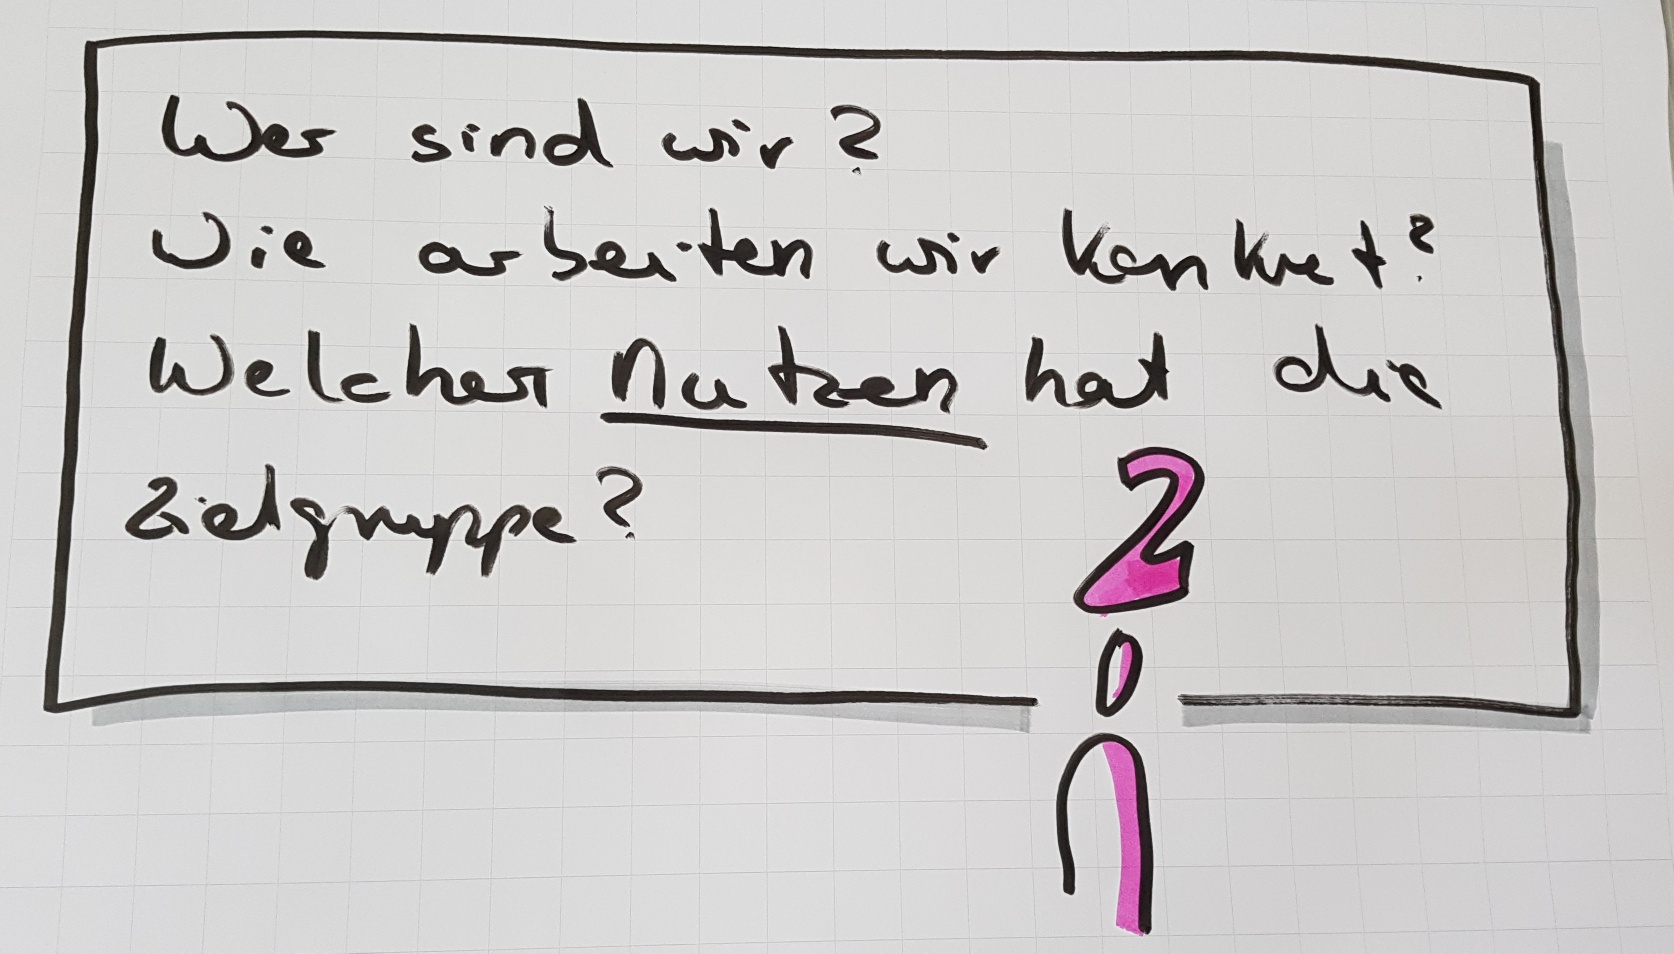 Wer sind wir?
Wie arbeiten wir konkret?
Welchen Nutzen hat die
Zielgruppe?